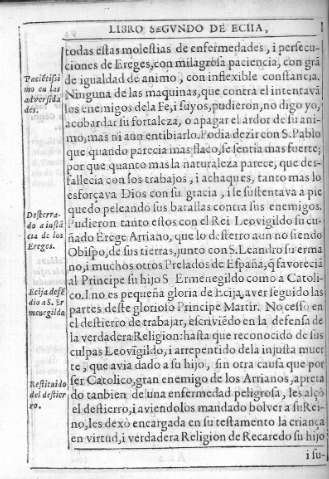 LIBRO SEGVNDO DE ECIIA,
todas estas molestias de enfermedades, i persecu-
ciones de Ereges, con milagrosa paciencia, con grã
Pacientissi
mo en las
adversida
des.
de igualdad de animo, con inflexible constancia.
Ninguna de las maquinas, que contra el intentavã
los enemigos dela Fe, i suyos, pudieron, no digo yo,
acobardar su fortaleza, o apagar el ardor de su ani-
mo, mas ni aun entibiarlo. Podia dezir con S. Pablo
que quando parecia mas flaco, se sentia mas fuerte;
por que quanto mas la naturaleza parece, que des-
fallecia con los trabajos, i achaques, tanto mas lo
esforçava Dios con su gracia, i le sustentava a pie
quedo peleando sus batallas contra sus enemigos.
Desterra-
do a instã
cia de los
Ereges.
Pudieron tanto estos con el Rei Leovigildo su cu-
ñado Erege Arriano, que lo desterro aun no siendo
Obispo, de sus tierras, junto con S. Leandro su erma
no, i muchos otros Prelados de España, q̃ favoreciã
al Principe su hijo S. Ermenegildo como a Catoli-
Ecija defẽ
dio a S. Er
menegildo
co. I no es pequeña gloria de Ecija, aver seguido las
partes deste glorioso Principe Martir. No cesso en
el destierro de trabajar, escriviẽdo en la defensa de
la verdadera Religion: hasta que reconocido de sus
culpas Leovigildo, i arrepentido dela injusta muer
te, que avia dado a su hijo, sin otra causa que por
Restituido
del destier
ro.
ser Catolico, gran enemigo de los Arrianos, apreta
do tanbien de una enfermedad peligrosa, les alçò
el destierro, i aviendolos mandado bolver a su Rei-
no, les dexò encargada en su testamento la criança
en virtud, i verdadera Religion de Recaredo su hijo
i su-